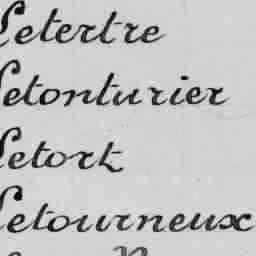 Letertre
Letonturier
Letort
Letourneux